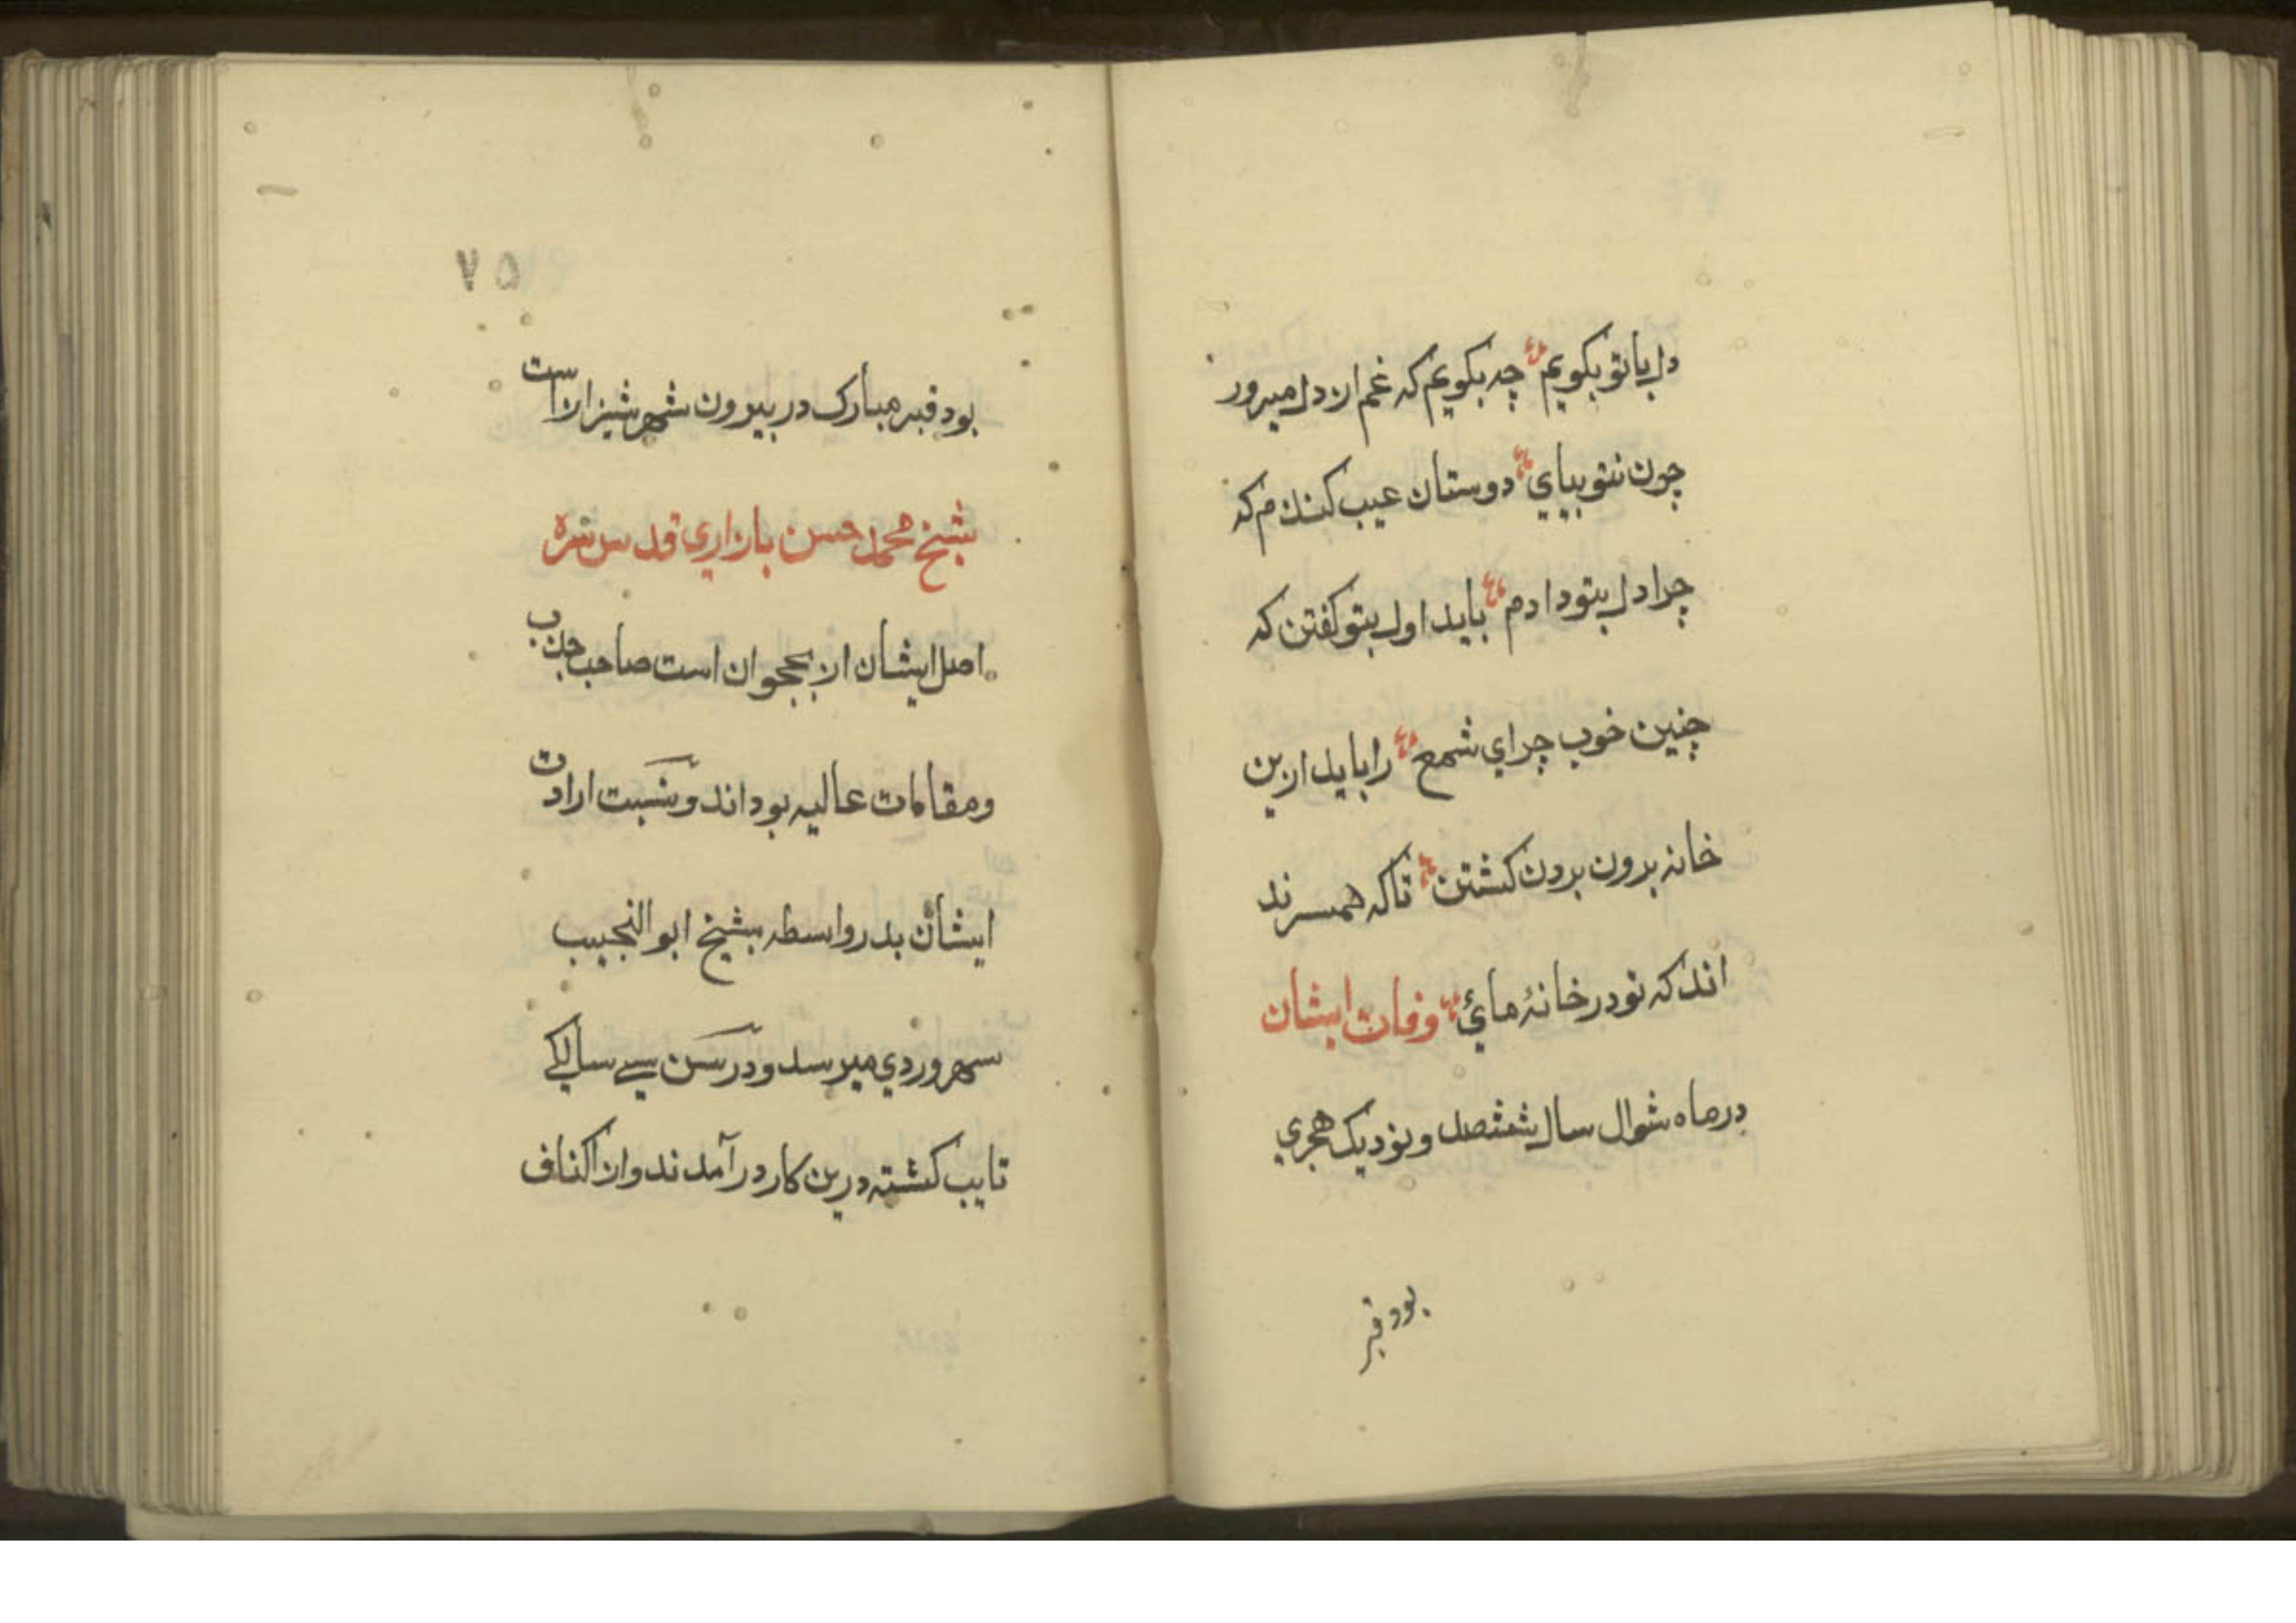 دل باتو بکویم چه بکویم که غم از دل میرور
چون نتو بیایي دوستان عیب کنند م که
چرا دل بتو دادم باید اول بتو کفتن که
چنین خوب چراي شمع را باید ازین
خانه برون بردن کشتن تاکه همسرند
اند که نو در خانۀ مائ وفات ایشان
در ماه شوال سال ششصد و نودیک هجري
بود قبر
۷۵
بود قبر مبارک در بیرون شهر شیزار است
شیخ محمد حسن بازاري قدس سره
اصل ایشان از نحجوان است صاحب جذب
ومقامات عالیه بود اند و نسبت ارادت
ایشان بدر واسطه بشیخ ابو النجیب
سهروردي میرسد و در سن سے سالکے
تایب کشته درین کار در آمدند واز اکناف